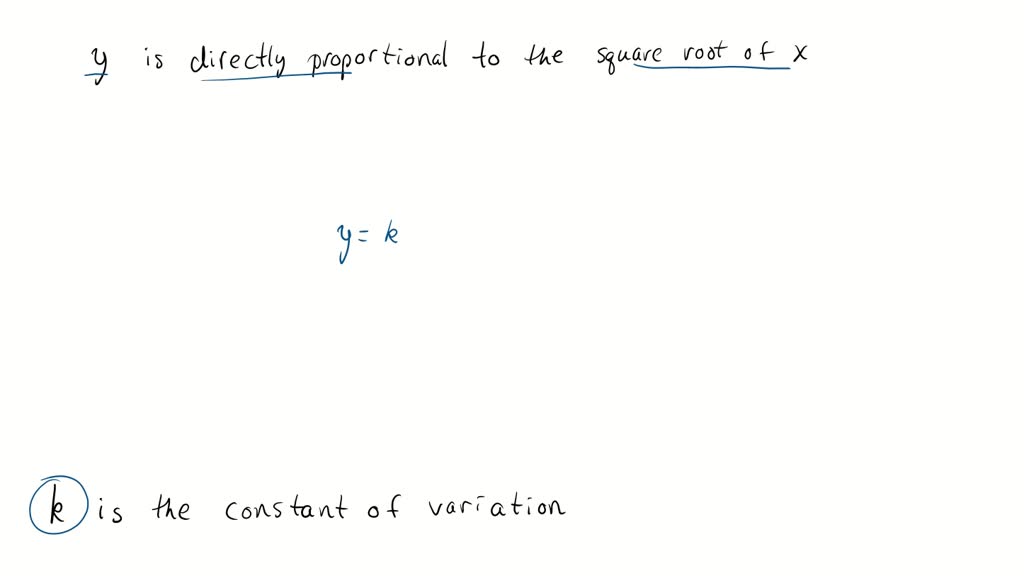 y is directly proportional to the square root of x
y = k
k is the constant of variation